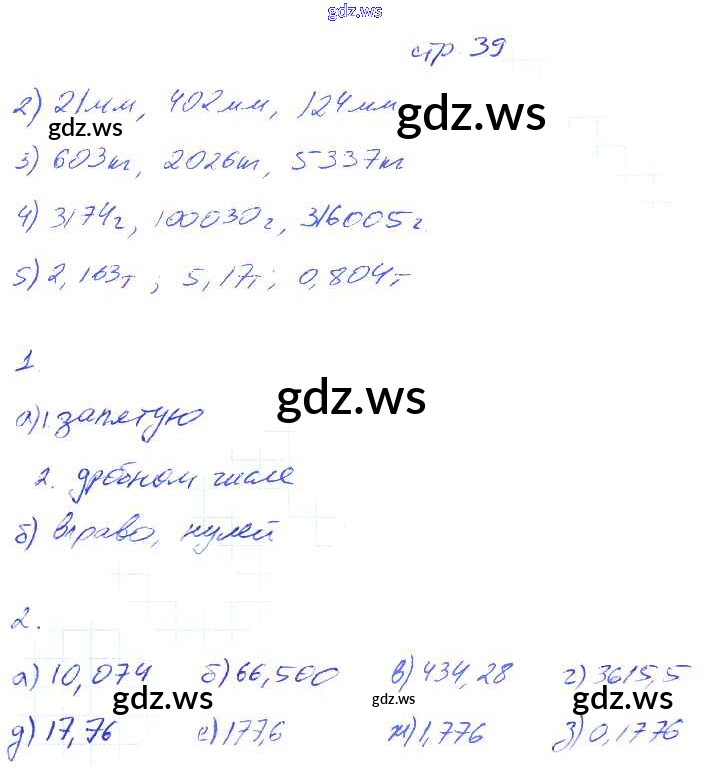 gdz.ws
стр 39
2) 21мм, 402мм, 124мм
gdz.ws gdz.ws
3) 603кг, 2026кг, 5337кг
4) 3174г, 100030г, 316005г.
gdz.ws
5) 2,163т; 5,17т; 0,804т
1
gdz.ws
а) 1. запятую
2. дробном числе
gdz.ws
б) вправо, нулей
2.
а) 10,074 б) 66,500 в) 434,28 г) 3615,5
gdz.ws gdz.ws gdz.ws
д) 17,76 е) 177,6 ж) 1,776 з) 0,1776
gdz.ws